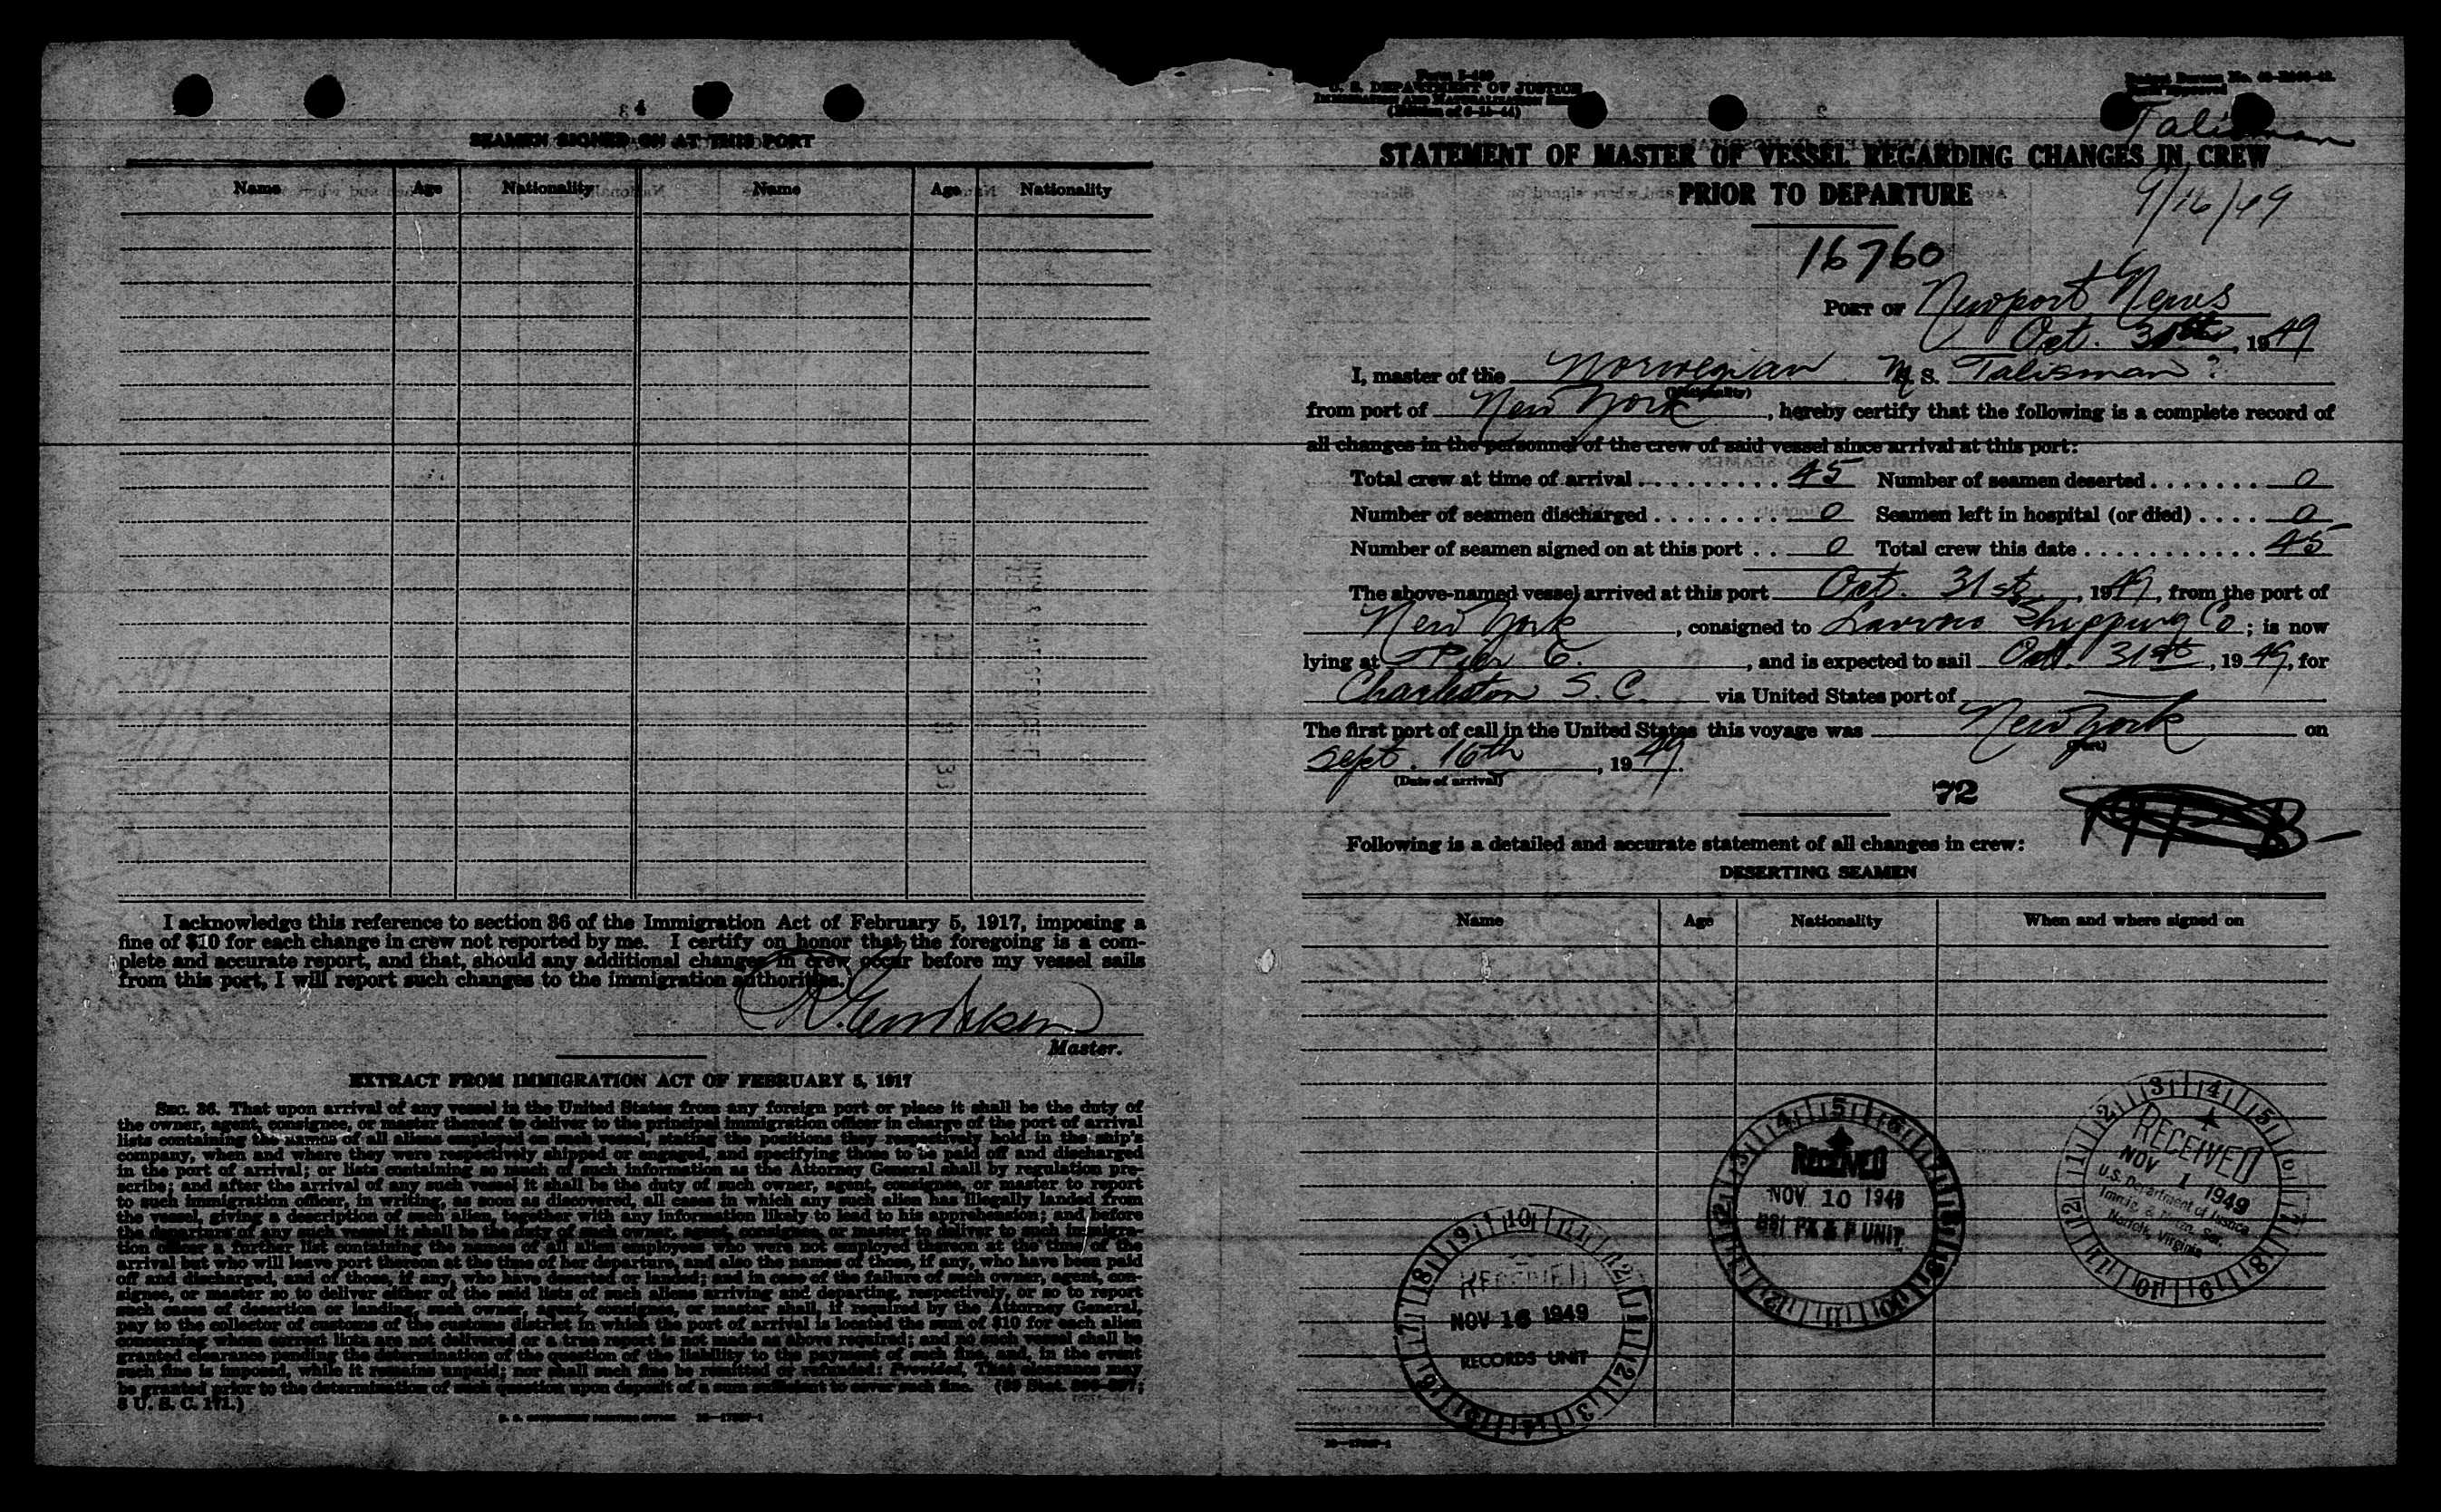 4
SEAMEN SIGNED ON AT THIS PORT
Name Age Nationality Name Age Nationality
I acknowledge this reference to section 36 of the Immigration Act of February 5, 1917, imposing a
fine of $10 for each change in crew not reported by me. I certify on honor that the foregoing is a com-
plete and accurate report, and that, should any additional changes in crew occur before my vessel sails
from this port, I will report such changes to the immigration authorities.
Master.
EXTRACT FROM IMMIGRATION ACT OF FEBRUARY 5, 1917
SEC. 36. That upon arrival of any vessel in the United States from any foreign port or place it shall be the duty of
the owner, agent, consignee, or master thereof to deliver to the principal immigration officer in charge of the port of arrival
lists containing the names of all aliens employed on such vessel, stating the positions they respectively hold in the ship's
company, when and where they were respectively shipped or engaged, and specifying those to be paid off and discharged
in the port of arrival; or lists containing so much of such information as the Attorney General shall by regulation pre-
scribe; and after the arrival of any such vessel it shall be the duty of such owner, agent, consignee, or master to report
to such immigration officer, in writing, as soon as discovered, all cases in which any such alien has illegally landed from
the vessel, giving a description of such alien, together with any information likely to lead to his apprehension; and before
the departure of any such vessel it shall be the duty of such owner, agent, consignee, or master to deliver to such immigra-
tion officer a further list containing the names of all alien employees who were not employed thereon at the time of the
arrival but who will leave port thereon at the time of her departure, and also the names of those, if any, who have been paid
off and discharged, and of those, if any, who have deserted or landed; and in case of the failure of such owner, agent, con-
signee, or master so to deliver either of the said lists of such aliens arriving and departing, respectively, or so to report
such cases of desertion or landing, such owner, agent, consignee, or master shall, if required by the Attorney General,
pay to the collector of customs of the customs district in which the port of arrival is located the sum of $10 for each alien
concerning whom correct lists are not delivered or a true report is not made as above required; and no such vessel shall be
granted clearance pending the determination of the question of the liability to the payment of such fine, and, in the event
such fine is imposed, while it remains unpaid; nor shall such fine be remitted or refunded: Provided, That clearance may
be granted prior to the determination of such question upon deposit of a sum sufficient to cover such fine. (39 Stat. 896-897;
8 U. S. C. 171.)
U. S. GOVERNMENT PRINTING OFFICE
U. S. DEPARTMENT OF JUSTICE
IMMIGRATION AND NATURALIZATION
Talisman
STATEMENT OF MASTER OF VESSEL REGARDING CHANGES IN CREW
PRIOR TO DEPARTURE
9/16/49
16760
PORT OF Newport News
Oct. 31st, 1949
I, master of the Norwegian M. S. Talisman
(Nationality)
from port of New York, hereby certify that the following is a complete record of
all changes in the personnel of the crew of said vessel since arrival at this port:
Total crew at time of arrival 45 Number of seamen deserted 0
Number of seamen discharged 0 Seamen left in hospital (or died) 0
Number of seamen signed on at this port 0 Total crew this date 45
The above-named vessel arrived at this port Oct. 31st, 1949, from the port of
New York, consigned to Lavino Shipping Co; is now
lying at Pier 6., and is expected to sail Oct. 31st, 1949, for
Charleston S. C. via United States port of
The first port of call in the United States this voyage was New York on
(Port)
Sept. 16th, 1949.
(Date of arrival)
72
Following is a detailed and accurate statement of all changes in crew:
DESERTING SEAMEN
Name Age Nationality When and where signed on
RECEIVED
NOV 1 1949
U.S. Department of Justice
Immig. & Natzn. Ser.
Norfolk, Virginia
RECEIVED
NOV 10 1949
UNIT
RECEIVED
NOV 16 1949
RECORDS UNIT